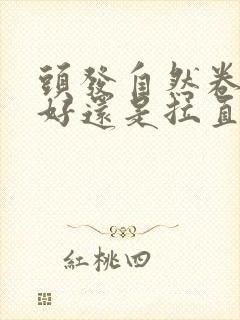 頭發自然卷
好還是拉直
紅桃四